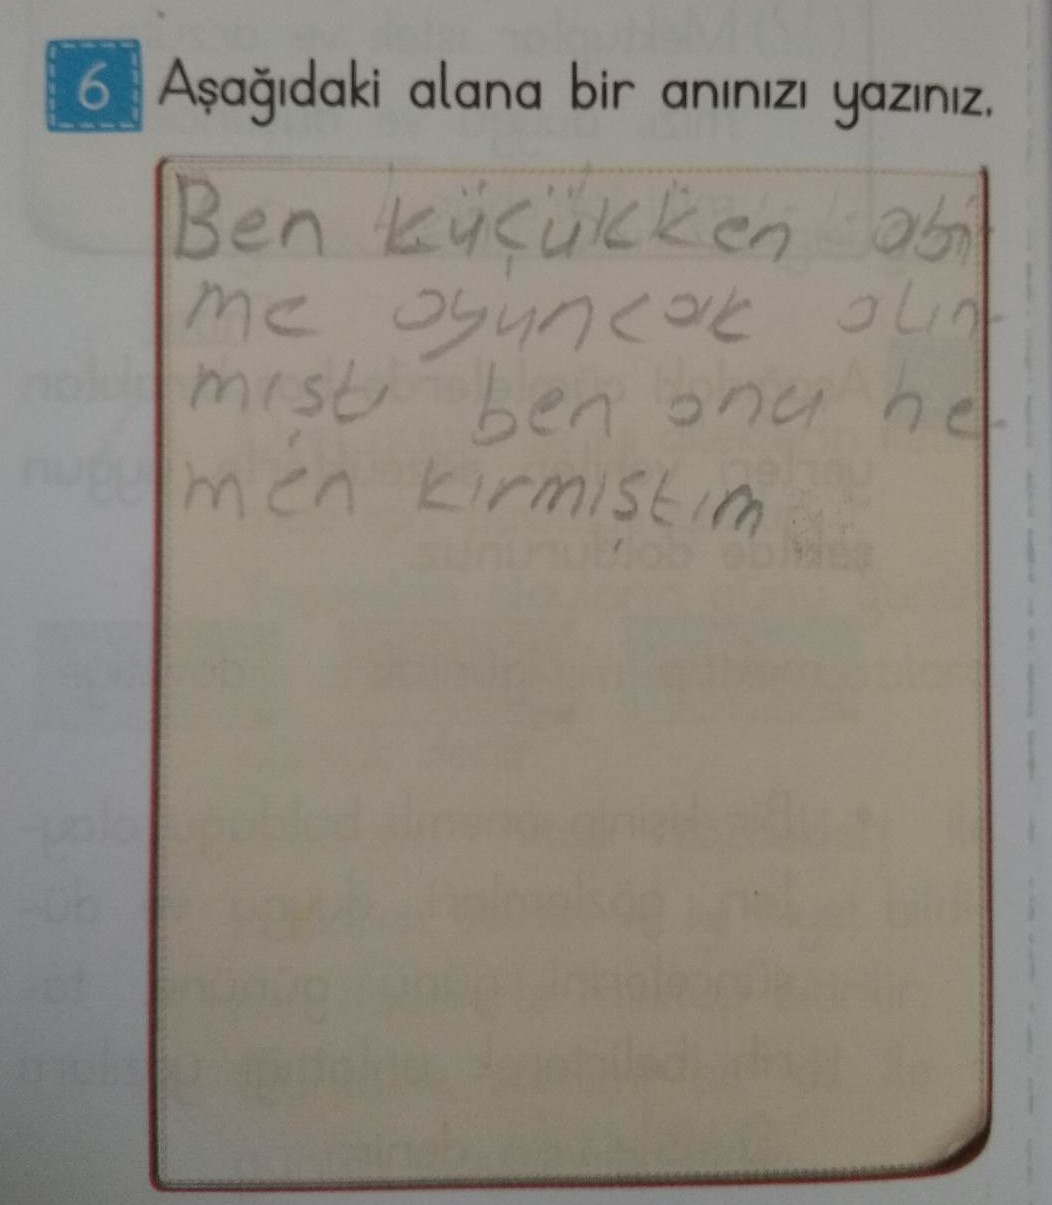 6 Aşağıdaki alana bir anınızı yazınız.
Ben küçükken abi
me oyuncak alın-
mıştı ben onu he-
men kırmıştım